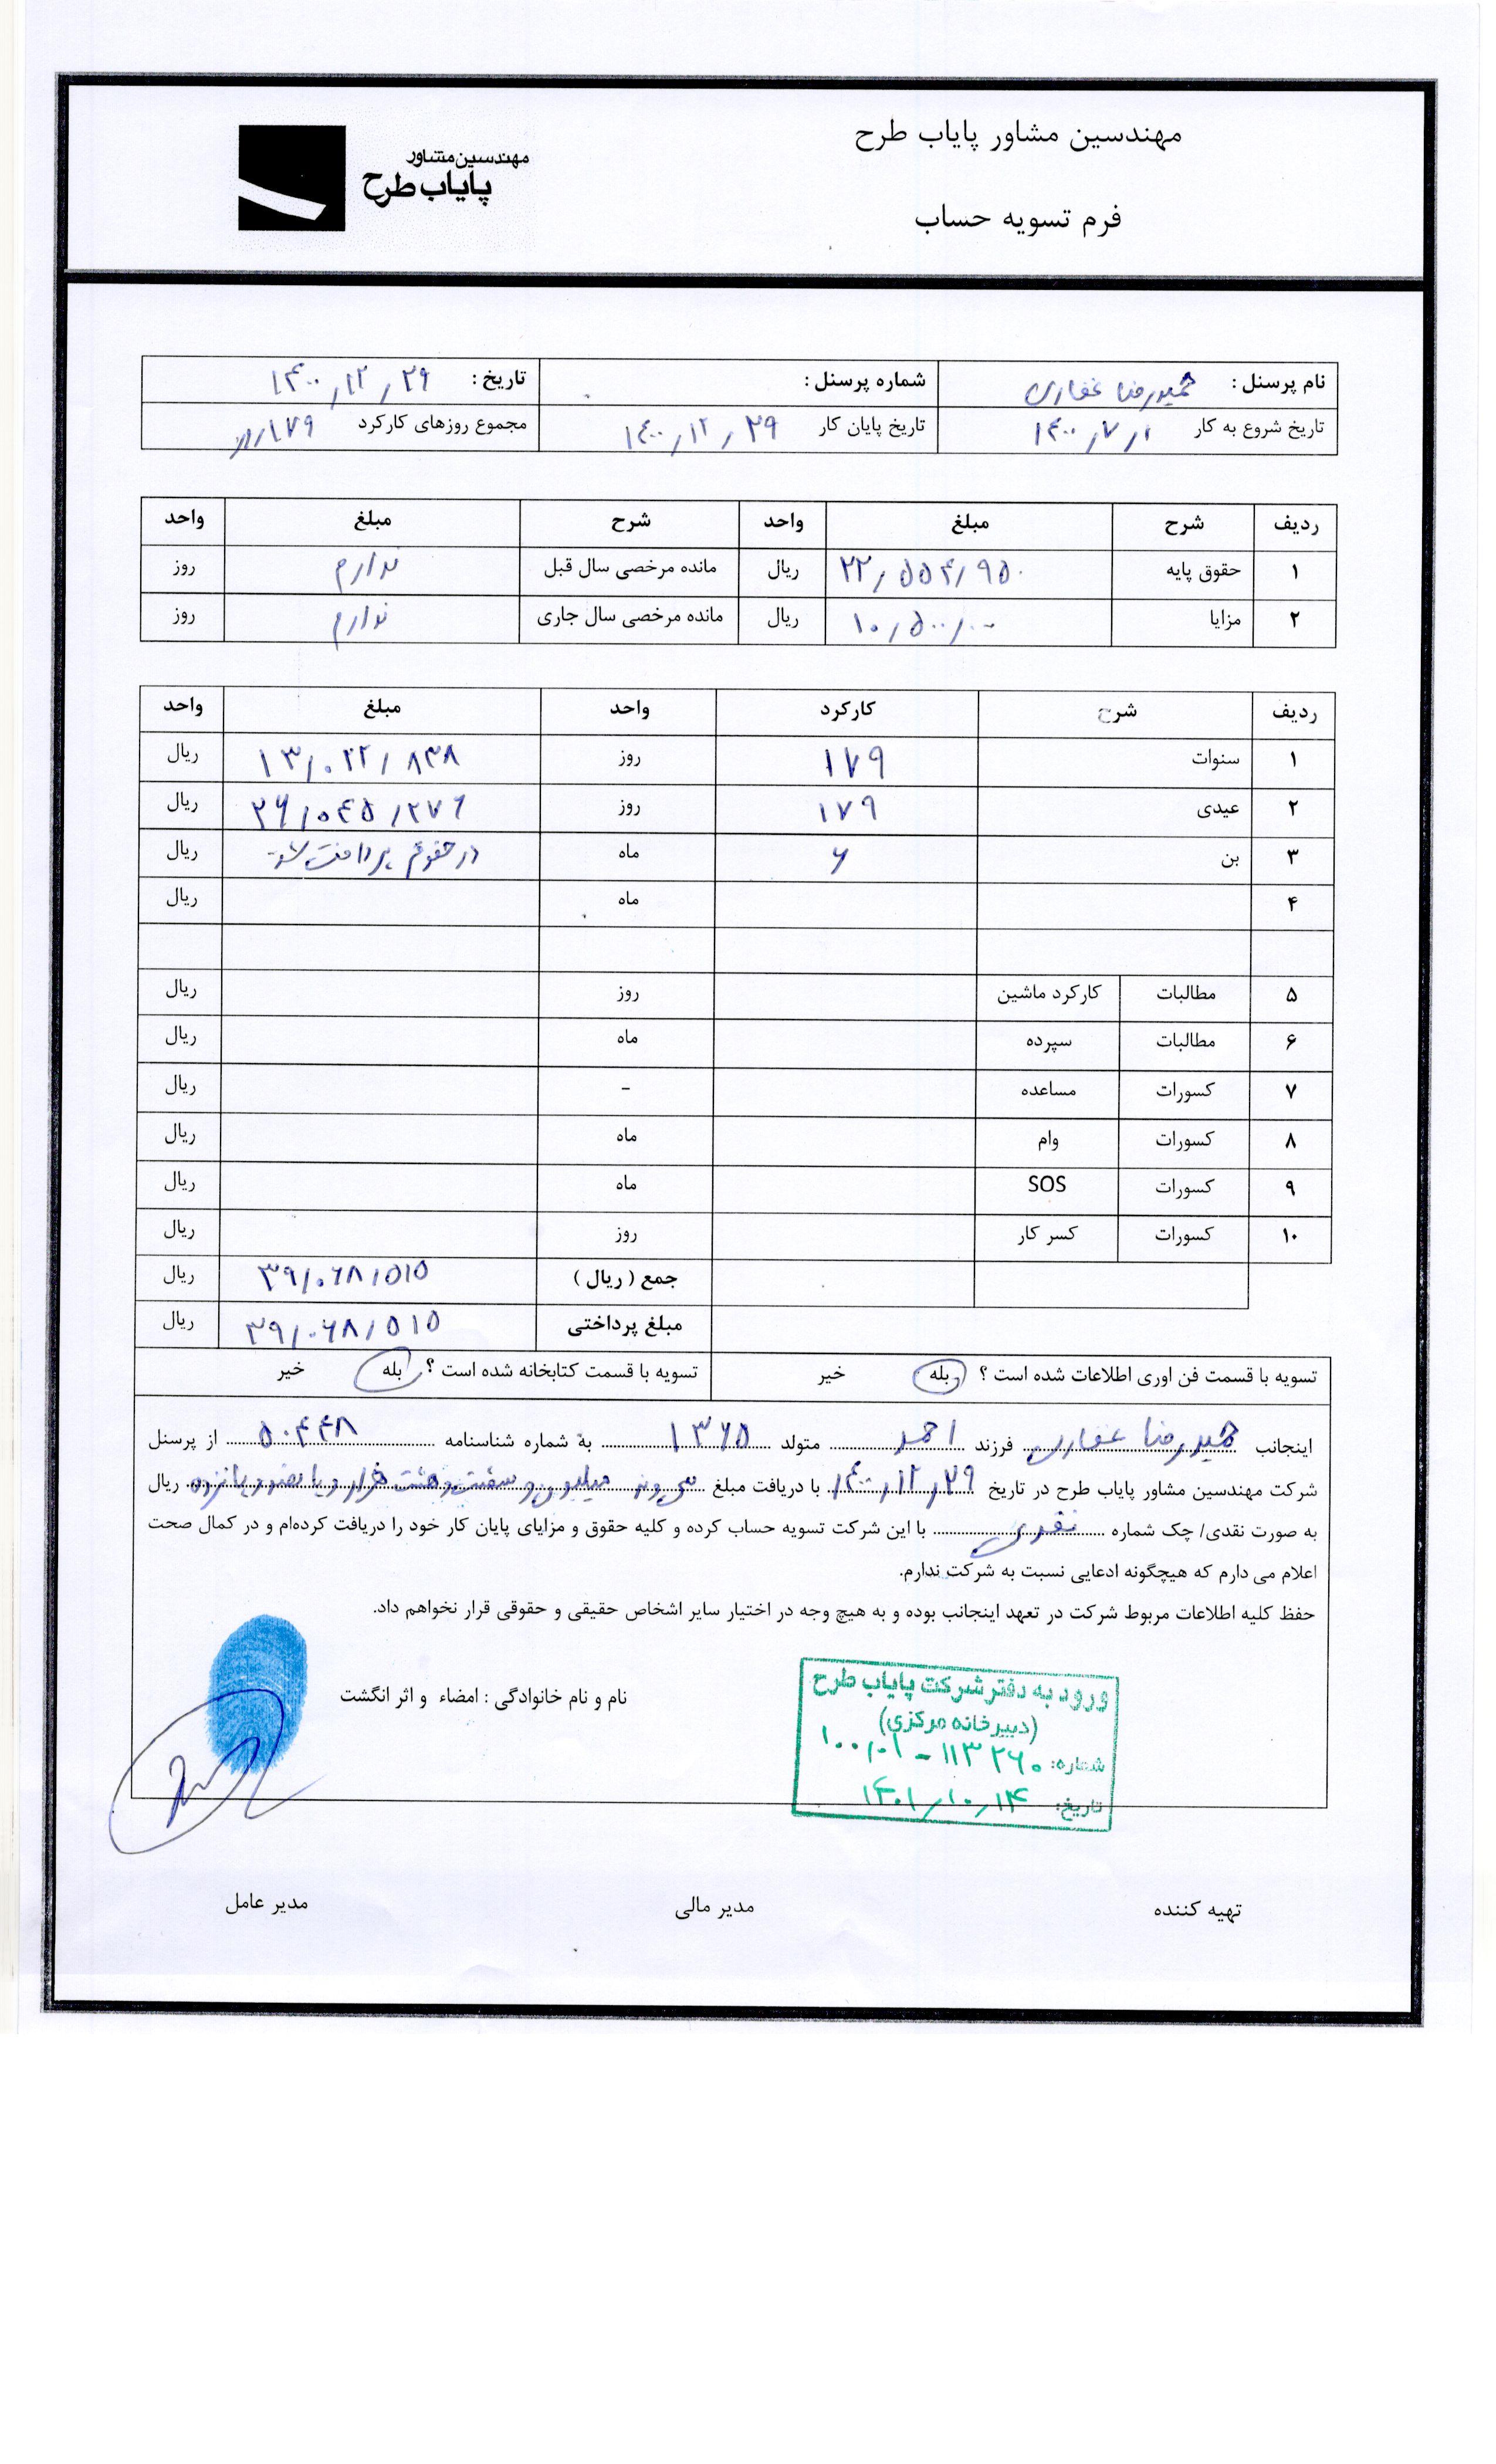 مهندسین مشاور پایاب طرح
مهندسین مشاور
پایاب طرح
فرم تسویه حساب
نام پرسنل : حمیدرضا غفاری شماره پرسنل : تاریخ : ۱۴۰۰/۱۲/۲۹
تاریخ شروع به کار ۱۴۰۰/۷/۱ تاریخ پایان کار ۱۴۰۰/۱۲/۲۹ مجموع روزهای کارکرد ۱۷۹ روز
ردیف شرح مبلغ واحد شرح مبلغ واحد
۱ حقوق پایه ۲۲/۵۵۴/۹۵۰ ریال مانده مرخصی سال قبل ندارم روز
۲ مزایا ۱۰/۵۰۰/۰۰۰ ریال مانده مرخصی سال جاری ندارم روز
ردیف شرح کارکرد واحد مبلغ واحد
۱ سنوات ۱۷۹ روز ۱۳/۰۲۲/۸۳۸ ریال
۲ عیدی ۱۷۹ روز ۲۶/۰۴۵/۲۷۶ ریال
۳ بن ۶ ماه در حقوق پرداخت شد ریال
۴ ماه ریال
۵ مطالبات کارکرد ماشین روز ریال
۶ مطالبات سپرده ماه ریال
۷ کسورات مساعده - ریال
۸ کسورات وام ماه ریال
۹ کسورات SOS ماه ریال
۱۰ کسورات کسر کار روز ریال
جمع ( ریال ) ۳۹/۰۶۸/۵۱۵ ریال
مبلغ پرداختی ۳۹/۰۶۸/۵۱۵ ریال
تسویه با قسمت فن اوری اطلاعات شده است ؟ بله خیر تسویه با قسمت کتابخانه شده است ؟ بله خیر
اینجانب حمیدرضا غفاری فرزند احمد متولد ۱۳۶۵ به شماره شناسنامه ۵۰۴۴۸ از پرسنل
شرکت مهندسین مشاور پایاب طرح در تاریخ ۱۴۰۰/۱۲/۲۹ با دریافت مبلغ سی و نه میلیون و شصت و هشت هزار و پانصد و پانزده ریال
به صورت نقدی/ چک شماره نقدی با این شرکت تسویه حساب کرده و کلیه حقوق و مزایای پایان کار خود را دریافت کرده‌ام و در کمال صحت
اعلام می دارم که هیچگونه ادعایی نسبت به شرکت ندارم.
حفظ کلیه اطلاعات مربوط شرکت در تعهد اینجانب بوده و به هیچ وجه در اختیار سایر اشخاص حقیقی و حقوقی قرار نخواهم داد.
نام و نام خانوادگی : امضاء و اثر انگشت
ورود به دفتر شرکت پایاب طرح
(دبیرخانه مرکزی)
شماره: ۱۱۳۲۶۰ - ۱۰۰/۰۱
تاریخ: ۱۴۰۱/۱۰/۱۴
تهیه کننده مدیر مالی مدیر عامل